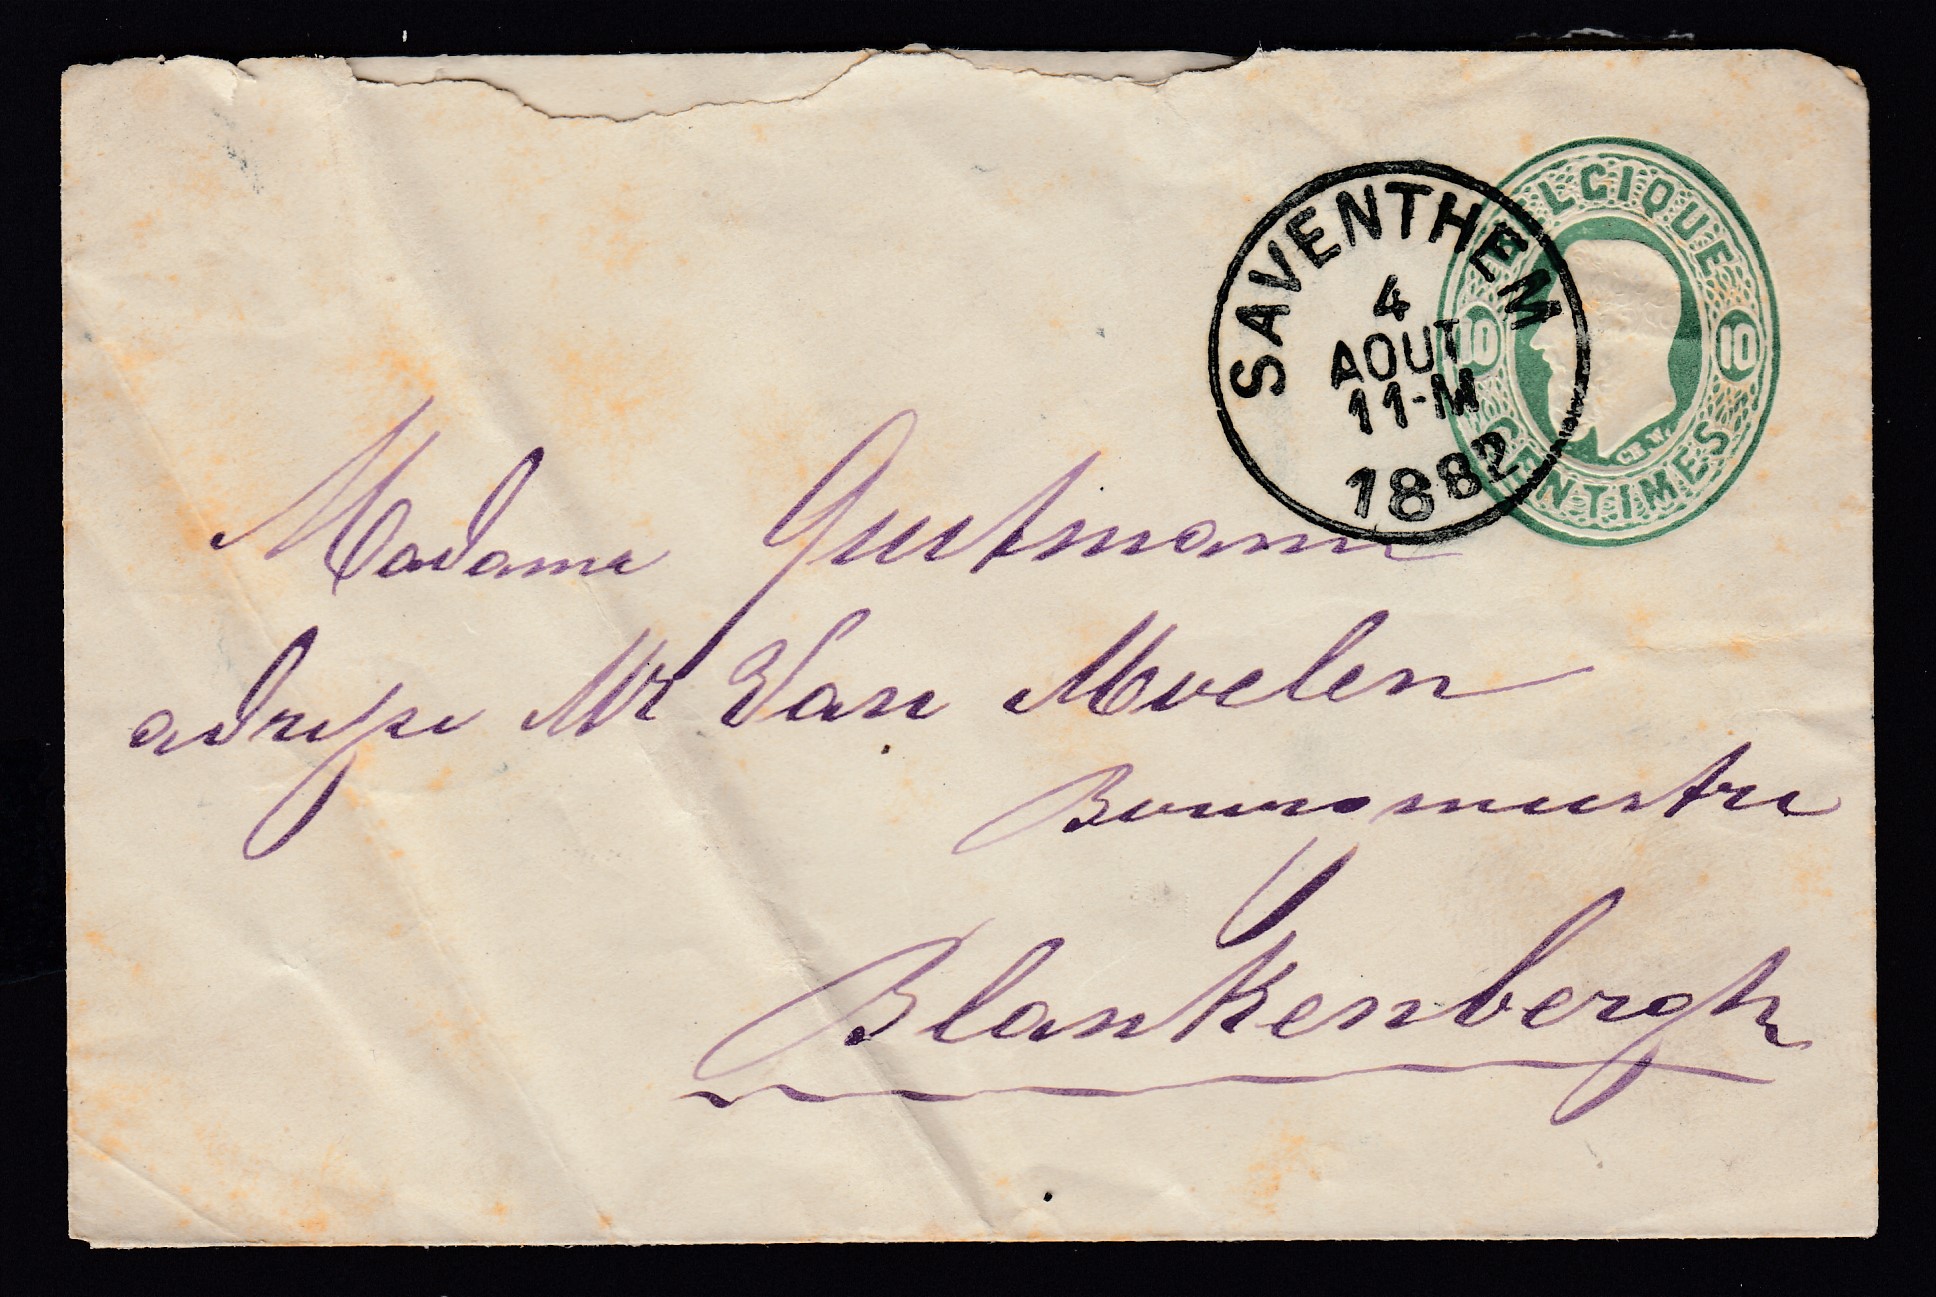 BELGIQUE
10 10
CENTIMES
CH.W.
SAVENTHEM
4
AOUT
11-M
1882
Madame Gutmann
adresse Mr Van Mvelen
Bourgmestre
Blankenbergh